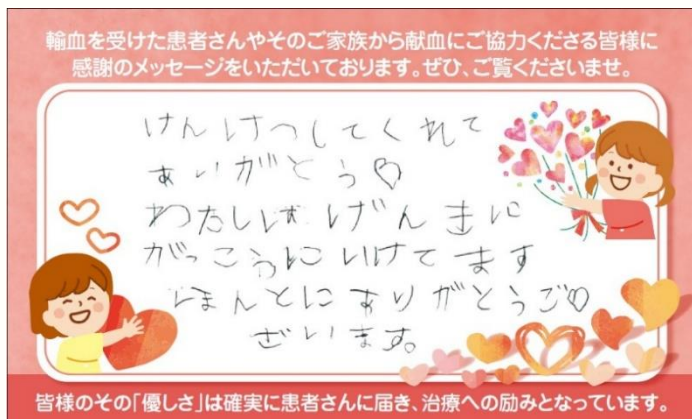 輸血を受けた患者さんやそのご家族から献血にご協力くださる皆様に
感謝のメッセージをいただいております。ぜひ、ご覧くださいませ。
けんけつしてくれて
ありがとう♡
わたしはげんきに
がっこうにいけてます
ほんとにありがとうご♡
ざいます。
皆様のその「優しさ」は確実に患者さんに届き、治療への励みとなっています。